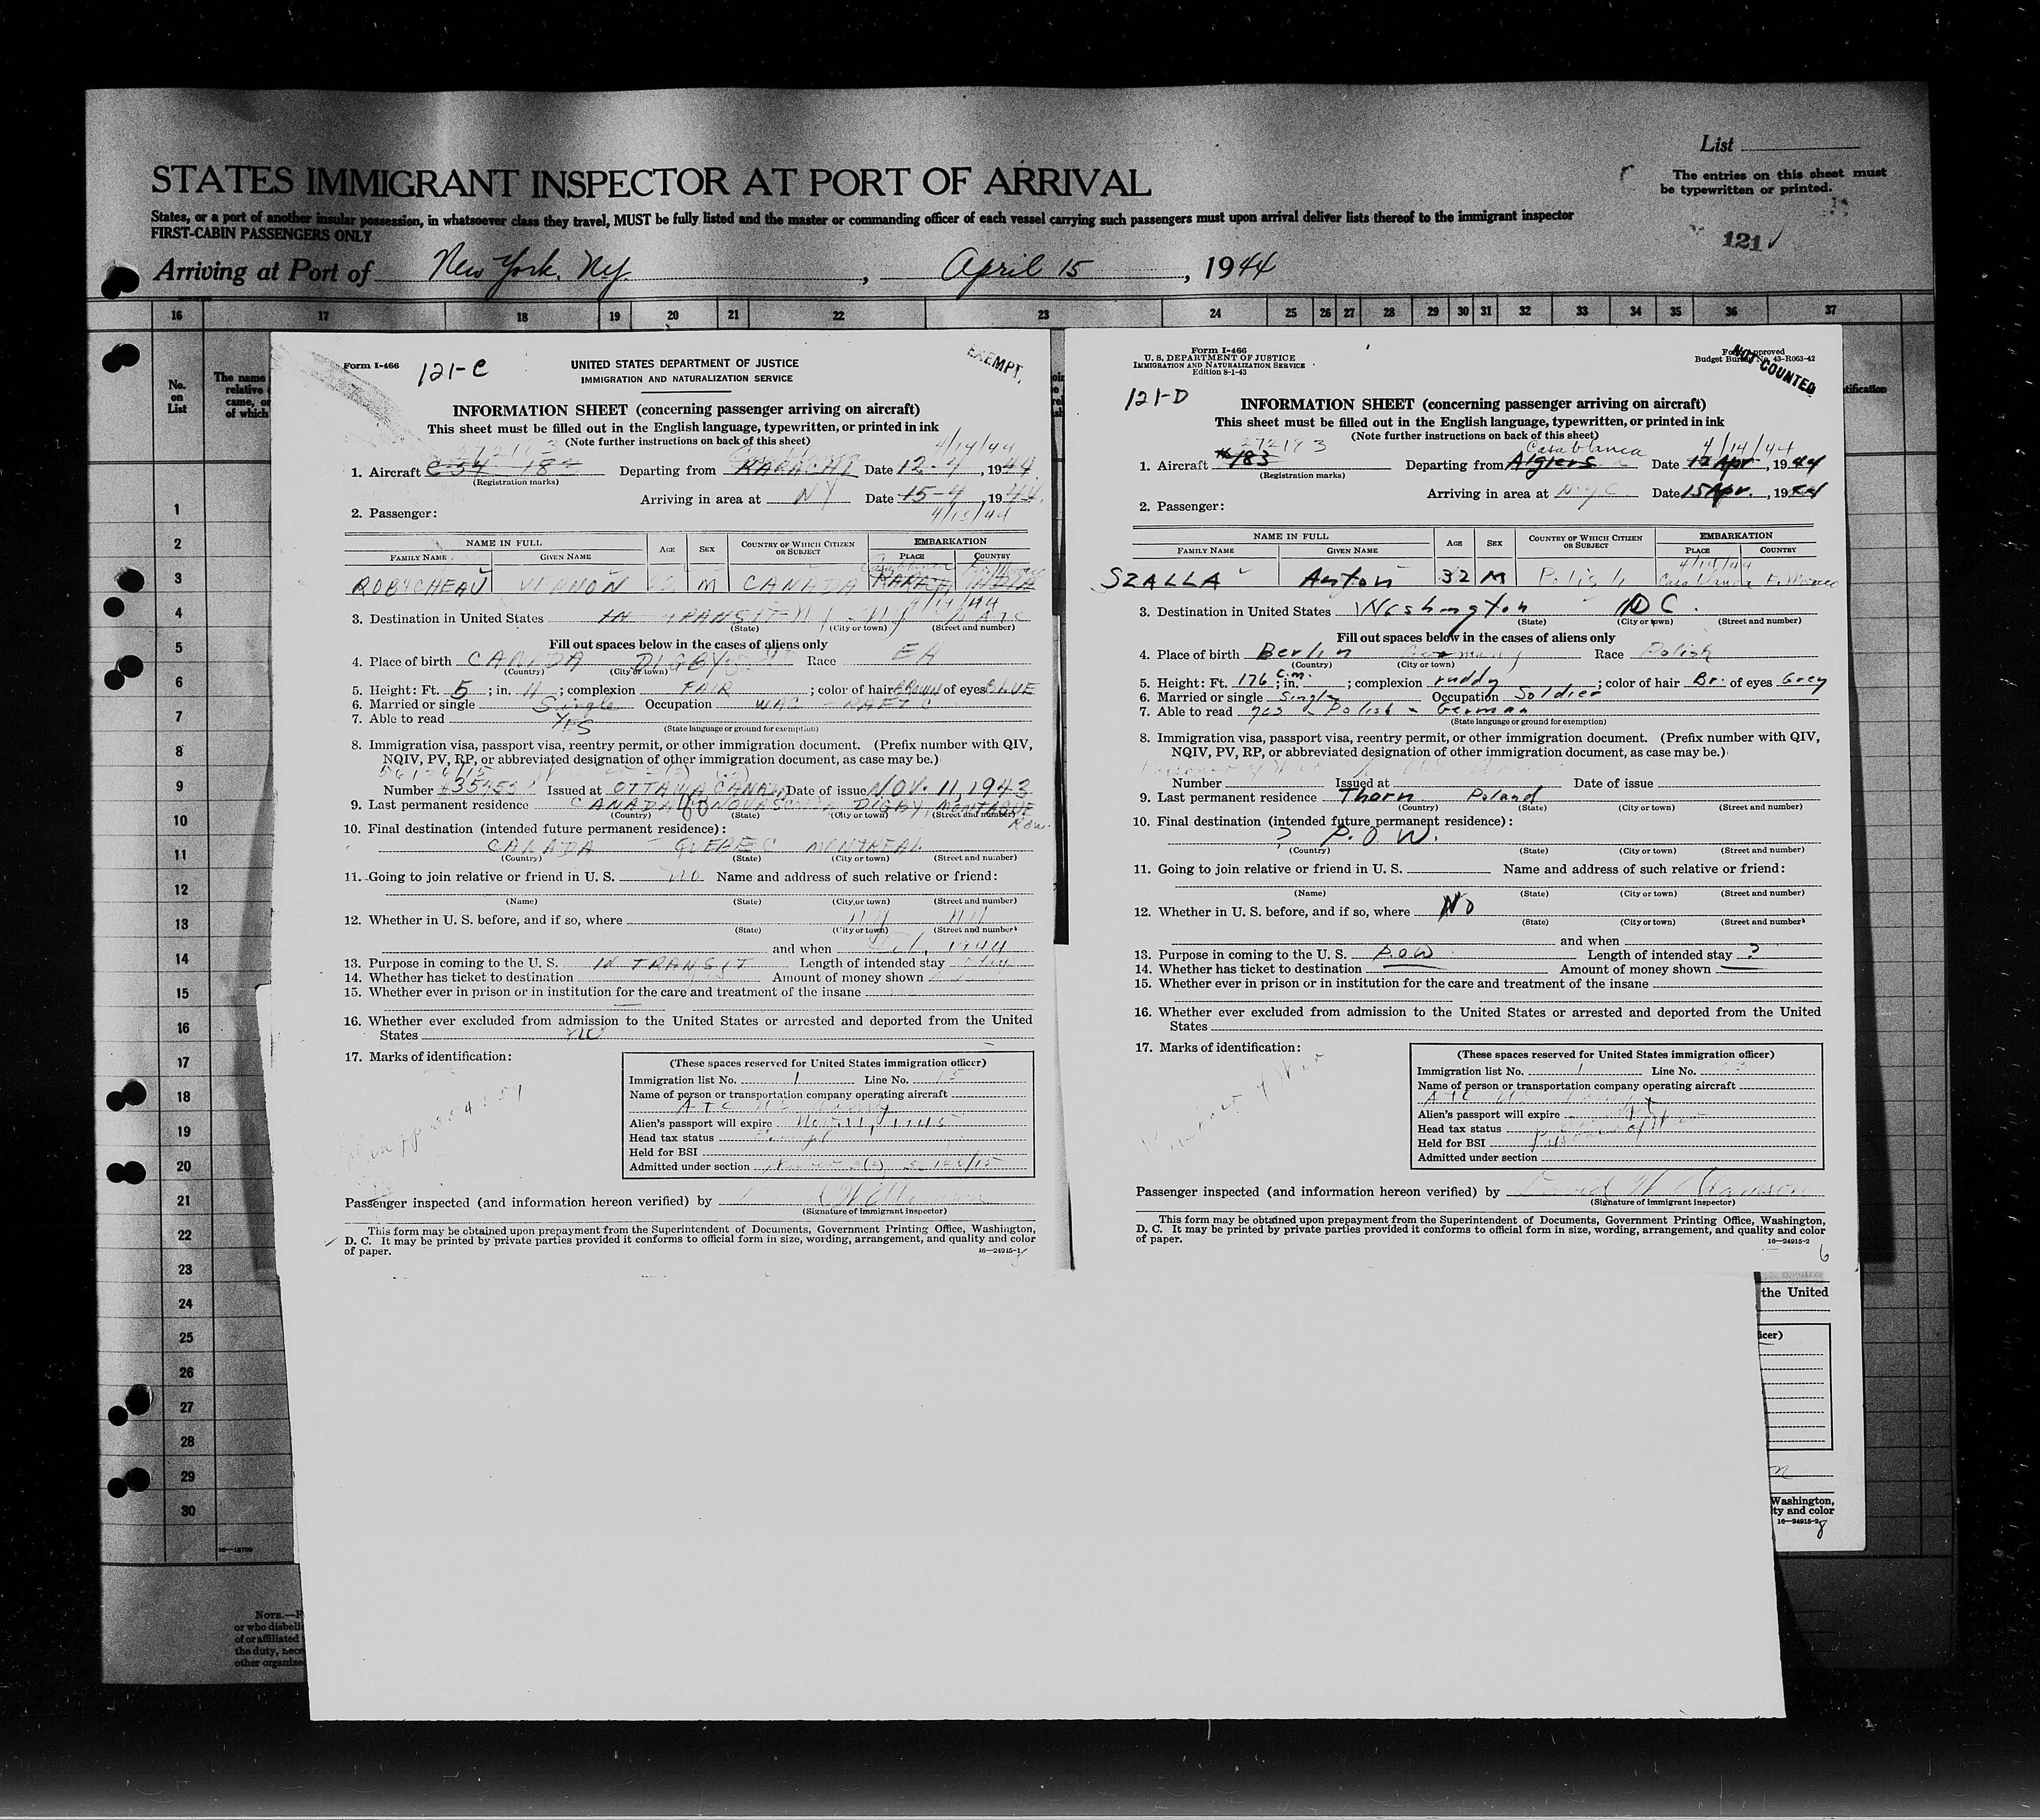 List
STATES IMMIGRANT INSPECTOR AT PORT OF ARRIVAL
The entries on this sheet must
be typewritten or printed.
States, or a port of another insular possession, in whatsoever class they travel, MUST be fully listed and the master or commanding officer of each vessel carrying such passengers must upon arrival deliver lists thereof to the immigrant inspector
FIRST-CABIN PASSENGERS ONLY
121
Arriving at Port of New York, NY. , April 15 , 1944
16 17 18 19 20 21 22 23 24 25 26 27 28 29 30 31 32 33 34 35 36 37
No.
on
List
The name
relative
came, or
of which
1
2
3
4
5
6
7
8
9
10
11
12
13
14
15
16
17
18
19
20
21
22
23
24
25
26
27
28
29
30
Form I-466
121-C
UNITED STATES DEPARTMENT OF JUSTICE
IMMIGRATION AND NATURALIZATION SERVICE
EXEMPT
INFORMATION SHEET (concerning passenger arriving on aircraft)
This sheet must be filled out in the English language, typewritten, or printed in ink
(Note further instructions on back of this sheet)
272183 4/14/44
1. Aircraft C-54 Departing from KARACHI Date 12-4, 1944
(Registration marks)
Arriving in area at NY Date 15-4, 1944
4/15/44
2. Passenger:
NAME IN FULL AGE SEX COUNTRY OF WHICH CITIZEN OR SUBJECT EMBARKATION
FAMILY NAME GIVEN NAME PLACE COUNTRY
Casablanca
ROBYCHEAU VERNON M CANADA KARACHI INDIA
4/14/44
3. Destination in United States IN TRANSIT
(State) (City or town) (Street and number)
Fill out spaces below in the cases of aliens only
4. Place of birth CANADA DIGBY Race EH
(Country) (City or town)
5. Height: Ft. 5 ; in. 11 ; complexion FAIR ; color of hair BROWN of eyes BLUE
6. Married or single Single Occupation
7. Able to read YES
(State language or ground for exemption)
8. Immigration visa, passport visa, reentry permit, or other immigration document. (Prefix number with QIV,
NQIV, PV, RP, or abbreviated designation of other immigration document, as case may be.)
Number Issued at OTTAWA CANADA Date of issue NOV. 11, 1943
9. Last permanent residence CANADA NOVA SCOTIA DIGBY, MONTAGUE
(Country) (State) (City or town) (Street and number)
Row
10. Final destination (intended future permanent residence):
CANADA - QUEBEC MONTREAL
(Country) (State) (City or town) (Street and number)
11. Going to join relative or friend in U. S. no Name and address of such relative or friend:
(Name) (State) (City or town) (Street and number)
12. Whether in U. S. before, and if so, where
(State) (City or town) (Street and number)
and when 1944
13. Purpose in coming to the U. S. IN TRANSIT Length of intended stay
14. Whether has ticket to destination Amount of money shown
15. Whether ever in prison or in institution for the care and treatment of the insane
16. Whether ever excluded from admission to the United States or arrested and deported from the United
States NO
17. Marks of identification:
(These spaces reserved for United States immigration officer)
Immigration list No. 1 Line No. 15
Name of person or transportation company operating aircraft
ATC US
Alien's passport will expire Nov 11, 1945
Head tax status Exempt
Held for BSI
Admitted under section
Passenger inspected (and information hereon verified) by
(Signature of immigrant inspector)
This form may be obtained upon prepayment from the Superintendent of Documents, Government Printing Office, Washington,
D. C. It may be printed by private parties provided it conforms to official form in size, wording, arrangement, and quality and color
of paper.
16—24915-1
Form I-466
U. S. DEPARTMENT OF JUSTICE
IMMIGRATION AND NATURALIZATION SERVICE
Edition 8-1-43
Form approved
Budget Bureau No. 43-R063-42
NOT COUNTED
121-D
INFORMATION SHEET (concerning passenger arriving on aircraft)
This sheet must be filled out in the English language, typewritten, or printed in ink
(Note further instructions on back of this sheet)
272183 Casablanca 4/14/44
1. Aircraft 183 Departing from Algiers Date 12 Apr, 1944
(Registration marks)
Arriving in area at NYC Date 15 Apr., 1944
2. Passenger:
NAME IN FULL AGE SEX COUNTRY OF WHICH CITIZEN OR SUBJECT EMBARKATION
FAMILY NAME GIVEN NAME PLACE COUNTRY
4/14/44
SZALLA Anton 32 M Polish Casablanca F. Morocco
3. Destination in United States Washington DC.
(State) (City or town) (Street and number)
Fill out spaces below in the cases of aliens only
4. Place of birth Berlin Germany Race Polish
(Country) (City or town)
5. Height: Ft. 176 c.m. ; in. ; complexion ruddy ; color of hair Br. of eyes Grey
6. Married or single Single Occupation Soldier
7. Able to read yes Polish German
(State language or ground for exemption)
8. Immigration visa, passport visa, reentry permit, or other immigration document. (Prefix number with QIV,
NQIV, PV, RP, or abbreviated designation of other immigration document, as case may be.)
Prisoner of War
Number Issued at Date of issue
9. Last permanent residence Thorn Poland
(Country) (State) (City or town) (Street and number)
10. Final destination (intended future permanent residence):
? P.O.W.
(Country) (State) (City or town) (Street and number)
11. Going to join relative or friend in U. S. Name and address of such relative or friend:
(Name) (State) (City or town) (Street and number)
12. Whether in U. S. before, and if so, where No
(State) (City or town) (Street and number)
and when
13. Purpose in coming to the U. S. P.O.W. Length of intended stay ?
14. Whether has ticket to destination Amount of money shown
15. Whether ever in prison or in institution for the care and treatment of the insane
16. Whether ever excluded from admission to the United States or arrested and deported from the United
States
17. Marks of identification:
Prisoner of War
(These spaces reserved for United States immigration officer)
Immigration list No. 1 Line No.
Name of person or transportation company operating aircraft
ATC US Army
Alien's passport will expire
Head tax status
Held for BSI Prisoner of War
Admitted under section
Passenger inspected (and information hereon verified) by David W. Adamson
(Signature of immigrant inspector)
This form may be obtained upon prepayment from the Superintendent of Documents, Government Printing Office, Washington,
D. C. It may be printed by private parties provided it conforms to official form in size, wording, arrangement, and quality and color
of paper.
16—24915-2
6
the United
icer)
Washington,
ty and color
16—24915-2
8
NOTE.—F
or who disbeli
of or affiliated
the duty, nece
other organize